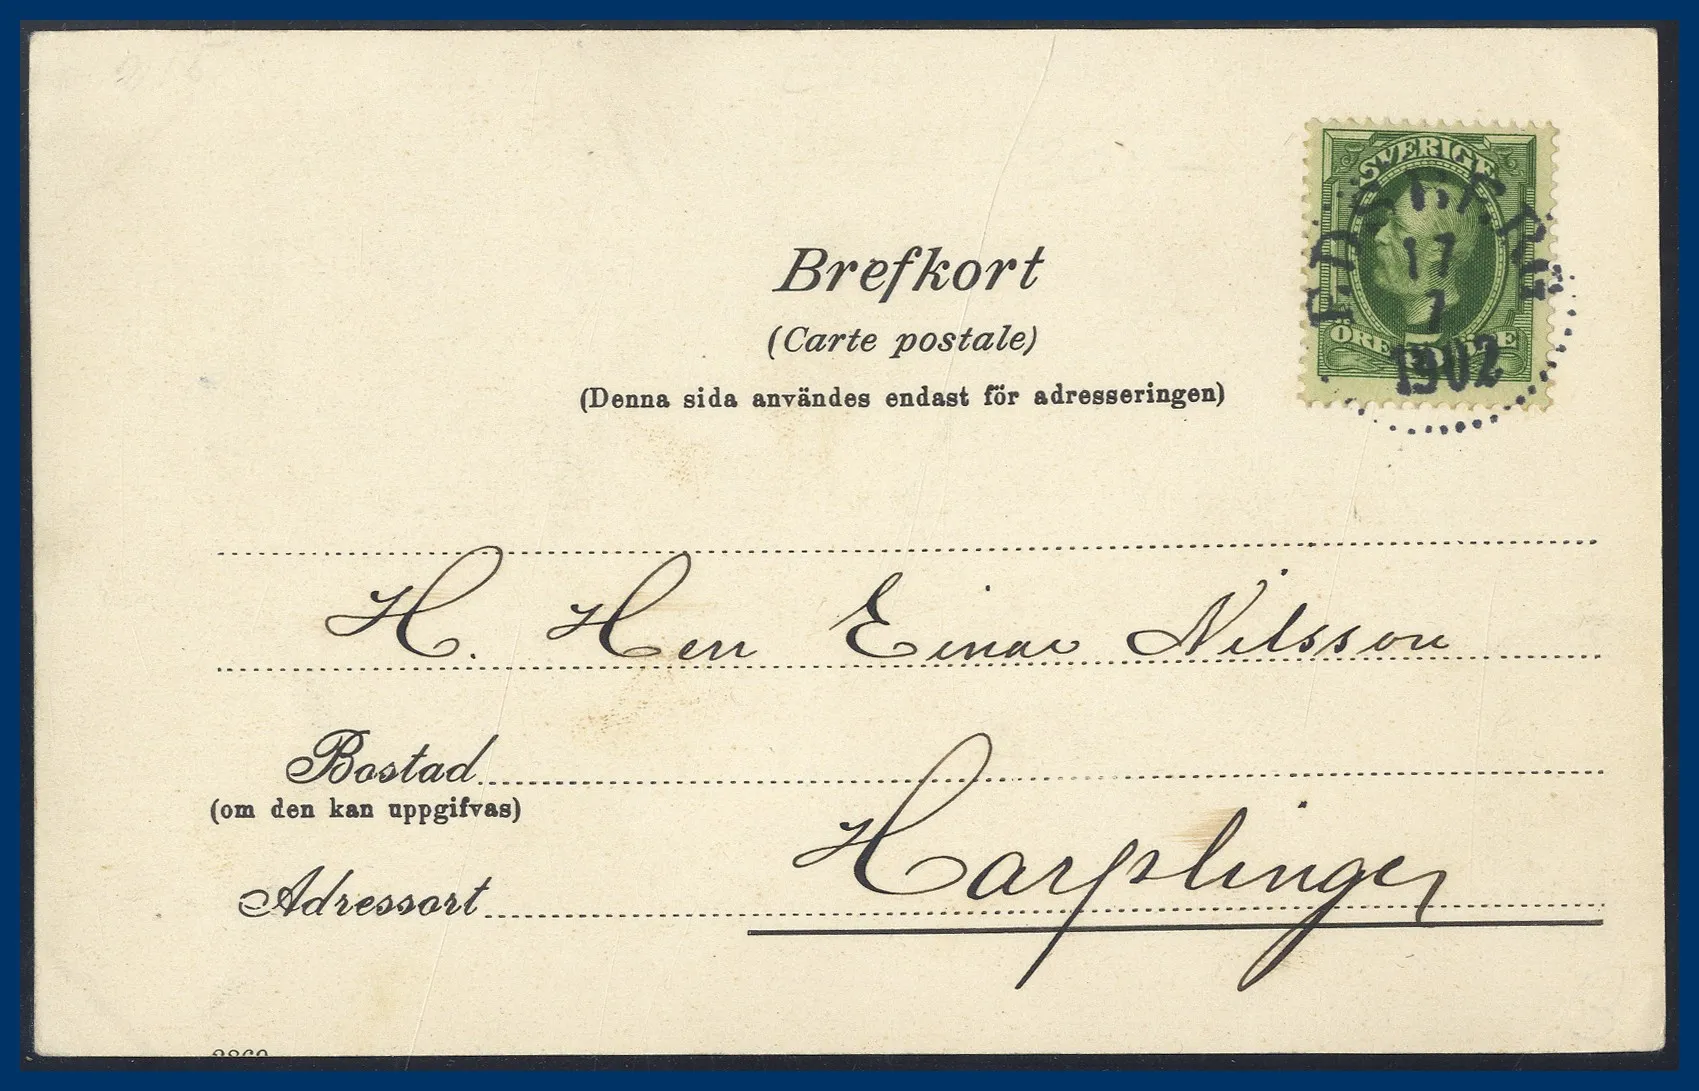 SVERIGE
17
7
1902
ÖRE
Brefkort
(Carte postale)
(Denna sida användes endast för adresseringen)
H. Herr Einar Nilsson
Bostad
(om den kan uppgifvas)
Harplinge
Adressort